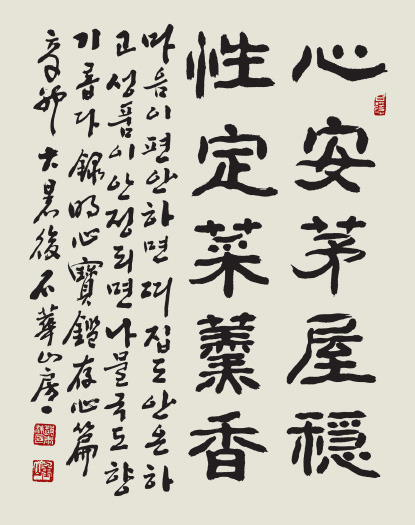 心安茅屋穩
性定菜羹香
마음이편안하면띠집도안온하
고성품이안정되면나물국도향
기롭다 錄明心寶鑑存心篇
辛卯大暑後石華山房